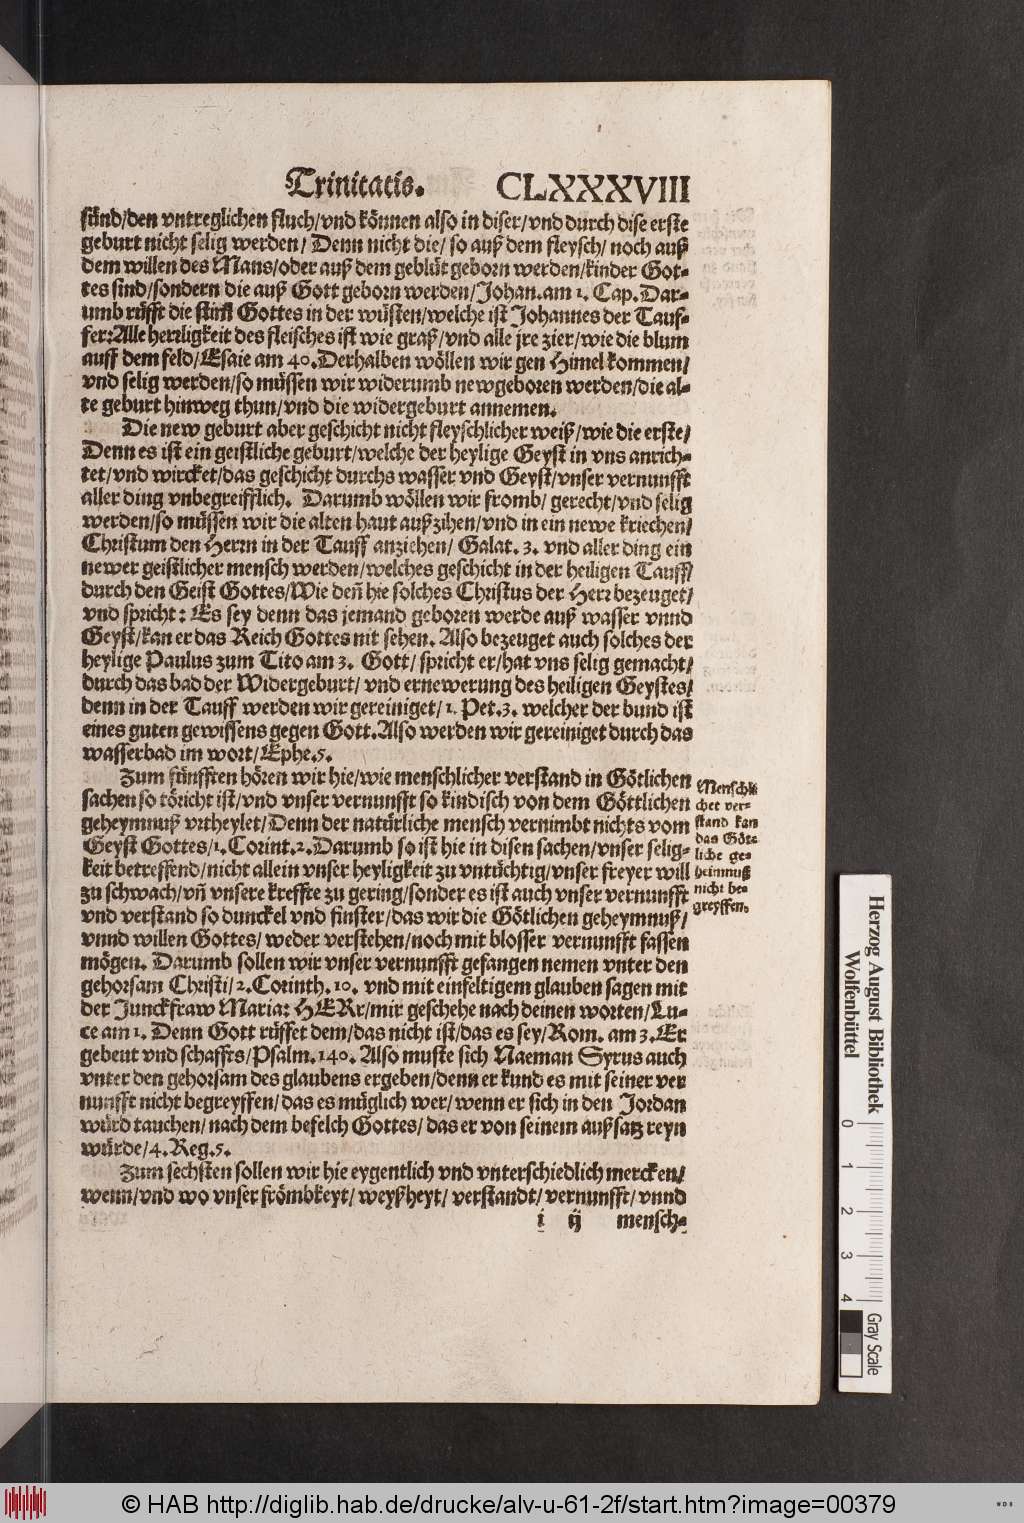 Trinitatis. CLXXXVIII
sünd/den vntreglichen fluch/vnd können also in diser/vnd durch dise erste
geburt nicht selig werden/ Denn nicht die/ so auß dem fleysch/ noch auß
dem willen des Mans/oder auß dem geblüt geborn werden/kinder Got-
tes sind/sondern die auß Gott geborn werden/Johan. am 1. Cap. Dar-
umb rüfft die stim̃ Gottes in der wüsten/welche ist Johannes der Tauf-
fer: Alle herrligkeit des fleisches ist wie graß/vnd alle jre zier/wie die blum
auff dem feld/Esaie am 40. Derhalben wöllen wir gen Himel kommen/
vnd selig werden/so müssen wir widerumb new geboren werden/die al-
te geburt hinweg thun/vnd die widergeburt annemen.
Die new geburt aber geschicht nicht fleyschlicher weiß/wie die erste/
Denn es ist ein geistliche geburt/welche der heylige Geyst in vns anrich-
tet/vnd wircket/das geschicht durchs wasser vnd Geyst/vnser vernunfft
aller ding vnbegreifflich. Darumb wöllen wir fromb/ gerecht/vnd selig
werden/so müssen wir die alten haut außzihen/vnd in ein newe kriechen/
Christum den Herrn in der Tauff anziehen/ Galat. 3. vnd aller ding ein
newer geistlicher mensch werden/welches geschicht in der heiligen Tauff/
durch den Geist Gottes/Wie deñ hie solches Christus der Herr bezeuget/
vnd spricht: Es sey denn das jemand geboren werde auß wasser vnnd
Geyst/kan er das Reich Gottes nit sehen. Also bezeuget auch solches der
heylige Paulus zum Tito am 3. Gott/ spricht er/hat vns selig gemacht/
durch das bad der Widergeburt/ vnd ernewerung des heiligen Geystes/
denn in der Tauff werden wir gereiniget/ 1. Pet. 3. welcher der bund ist
eines guten gewissens gegen Gott. Also werden wir gereiniget durch das
wasserbad im wort/Ephe. 5.
Zum fünfften hören wir hie/wie menschlicher verstand in Götlichen
sachen so töricht ist/vnd vnser vernunfft so kindisch von dem Göttlichen
geheymnuß vrtheylet/Denn der natürliche mensch vernimbt nichts vom
Geyst Gottes/1. Corint. 2. Darumb so ist hie in disen sachen/vnser selig-
keit betreffend/nicht allein vnser heyligkeit zu vntüchtig/vnser freyer will
zu schwach/vñ vnsere kreffte zu gering/sonder es ist auch vnser vernunfft
vnd verstand so dunckel vnd finster/das wir die Götlichen geheymnuß/
vnnd willen Gottes/ weder verstehen/noch mit blosser vernunfft fassen
mögen. Darumb sollen wir vnser vernunfft gefangen nemen vnter den
gehorsam Christi/2. Corinth. 10. vnd mit einfeltigem glauben sagen mit
der Junckfraw Maria: HERr/mir geschehe nach deinen worten/Lu-
ce am 1. Denn Gott rüffet dem/das nicht ist/das es sey/Rom. am 3. Er
gebeut vnd schaffts/Psalm. 140. Also muste sich Naeman Syrus auch
vnter den gehorsam des glaubens ergeben/denn er kund es mit seiner ver
nunfft nicht begreyffen/das es müglich wer/wenn er sich in den Jordan
würd tauchen/nach dem befelch Gottes/ das er von seinem außsatz reyn
würde/4. Reg. 5.
Zum sechsten sollen wir hie eygentlich vnd vnterschiedlich mercken/
wenn/vnd wo vnser frömbkeyt/ weyßheyt/ verstandt/ vernunfft/ vnnd
i ij mensch-
Menschli
cher ver-
stand kan
das Göt-
liche ge-
heimnuß
nicht be-
greyffen.
Herzog August Bibliothek
Wolfenbüttel
0 1 2 3 4
Gray Scale
© HAB http://diglib.hab.de/drucke/alv-u-61-2f/start.htm?image=00379
WDB